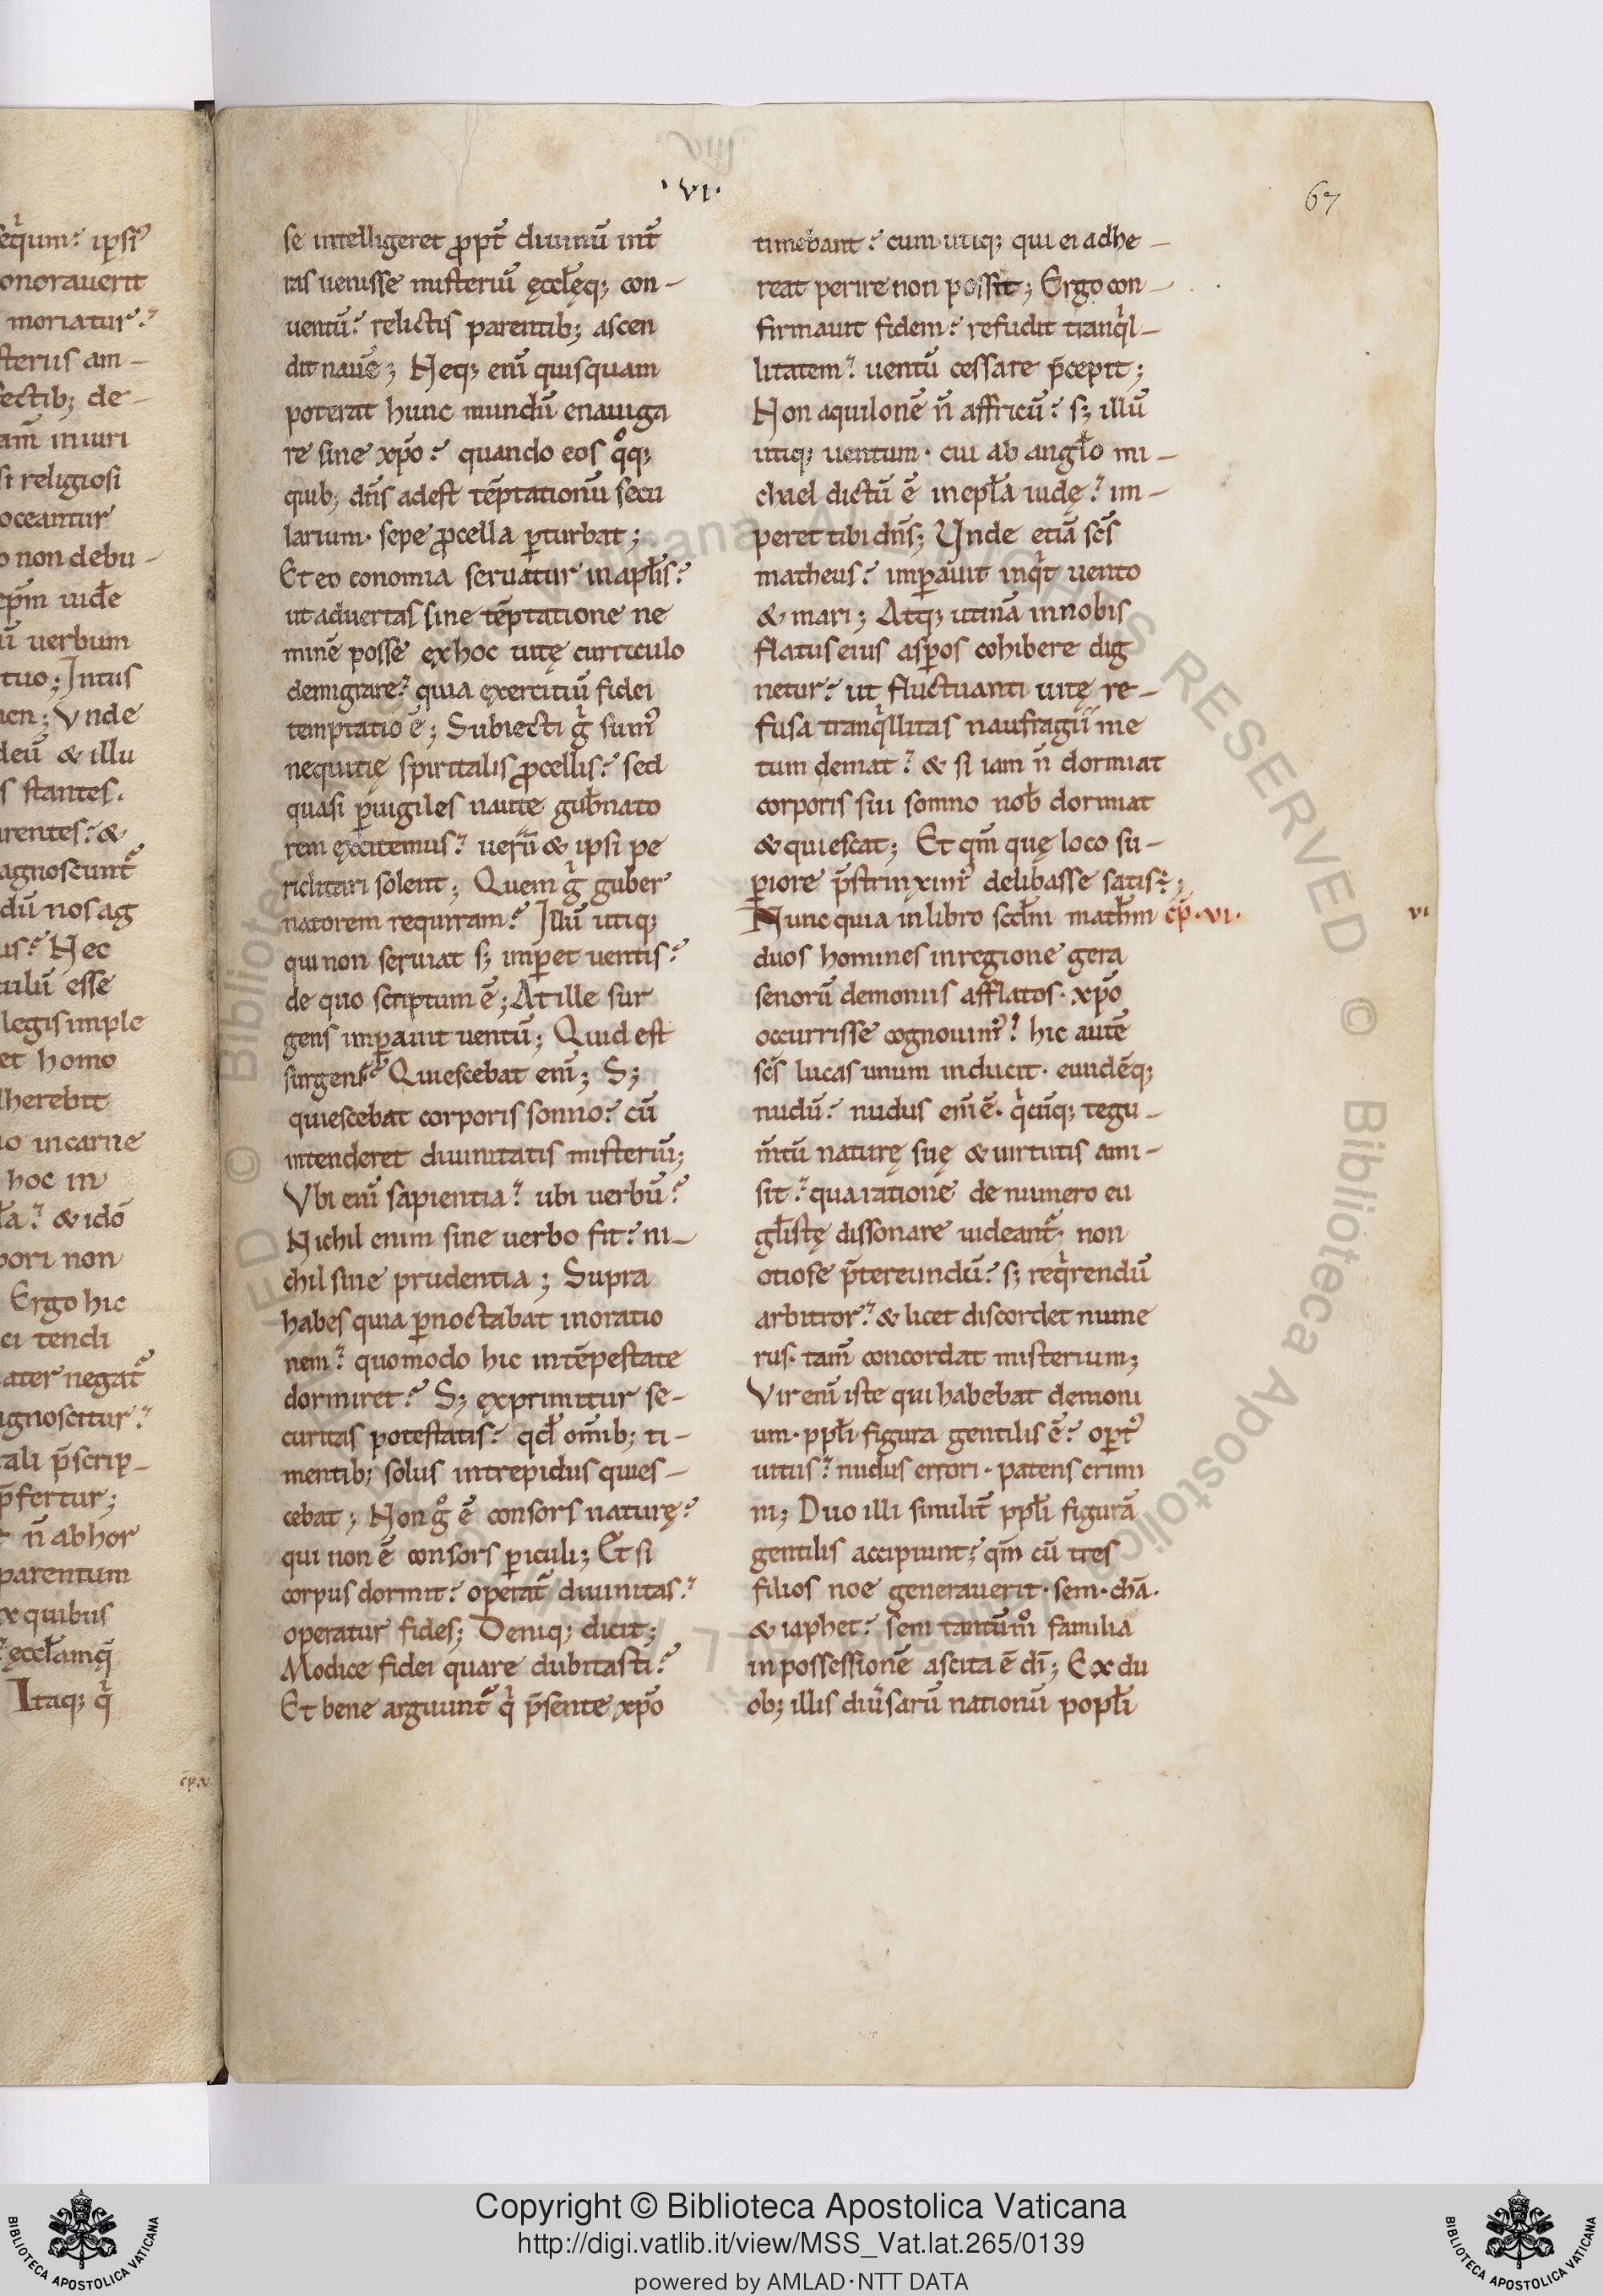 ·VI·
67
se intelligeret ꝓpt̄ diuinū int̄
ras uenisse misteriū ęccl̄ęq; con-
uentū? relictis parentib; ascen
dit nauē; Neq; enī quisquam
poterat hunc mundū enauiga
re sine xp̄o? quando eos qͦq;
quib; dn̄s adest tēptationū secu
larium· sepe ꝓcella ꝑturbat;
Et eo conomia seruatur in apl̄is?
ut aduertas sine tēptatione ne
minē posse ex hoc uitę curriculo
demigrare? quia exercitiū fidei
temptatio ē; Subiecti gͥ sumꝰ
nequitię spiritalis ꝓcellis? sed
quasi ꝑuigiles nautę gub̄nato
rem excitemus? uerū & ipsi pe
riclitari solent; Quem gͥ guber
natorem requiram? Illū utiq;
qui non seruiat s; imꝑet uentis?
de quo scriptum ē; At ille sur
gens imꝑauit uentū; Quid est
surgens? Quiescebat enī; S;
quiescebat corporis sonno? cū
intenderet diuinitatis misteriū;
Vbi enī sapientia? ubi uerbū?
Nichil enim sine uerbo fit? ni-
chil sine prudentia; Supra
habes quia ꝑnoctabat in oratio
nem? quomodo hic in tēpestate
dormiret? S; exprimitur se-
curitas potestatis? qd̄ om̄ib; ti-
mentib; solus intrepidus quies-
cebat; Non gͦ ē consors naturę?
qui non ē consors ꝑiculi; Et si
corpus dormit? operat̄ diuinitas?
operatur fides; Deniq; dicit;
Modice fidei quare dubitasti?
Et bene arguunt̄ qͥ p̄sente xp̄o
timebant? cum utiq; qui ei adhe-
reat perire non possit; Ergo con-
firmauit fidem? refudit tranqͥl-
litatem? uentū cessare p̄cepit;
Non aquilonē n̄ affricū? s; illū
utiq; uentum· cui ab angl̄o mi-
chael dictū ē in epl̄a iudę? im-
peret tibi dn̄s; Unde etiā sc̄s
matheus? imꝑauit inqͥt uento
& mari; Atq; utinā in nobis
flatus eius asꝑos cohibere dig
netur? ut fluctuanti uitę re-
fusa tranqͥllitas naufragii me
tum demat? & si iam n̄ dormiat
corporis sui somno nob̄ dormiat
& quiescat; Et qm̄ quę loco su-
ꝑiore p̄strinximꝰ delibasse satis;
Nunc quia in libro scd̄m math̄m cp̄·vi·
vi
duos homines in regione gera
senorū demoniis afflatos· xp̄o
occurrisse cognouimꝰ? hic autē
sc̄s lucas unum inducit· eundēq;
nudū? nudus enī ē· qͥcūq; tegu-
m̄tū naturę suę & uirtutis ami-
sit? qua ratione de numero eu
gl̄istę dissonare uideant̄, non
otiose p̄tereundū? s; reqͥrendū
arbitror? & licet discordet nume
rus· tam̄ concordat misterium;
Vir enī iste qui habebat demoni
um· ppl̄i figura gentilis ē? opt̄ꝰ
uitiis? nudus errori· patens crimi
ni; Duo illi similit̄ ppl̄i figurā
gentilis accipiunt? qm̄ cū tres
filios noe generauerit· sem· chā·
& iaphet? sem tantūmͦ familia
in possessionē ascita ē dī; Ex du
ob; illis diu̾sarū nationū popl̄i
Copyright © Biblioteca Apostolica Vaticana
http://digi.vatlib.it/view/MSS_Vat.lat.265/0139
powered by AMLAD·NTT DATA